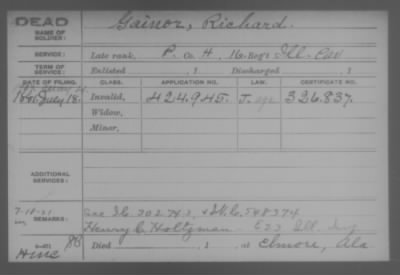 DEAD
NAME OF SOLDIER: Gainor, Richard.
SERVICE: Late rank, P. Co. H, 16 Reg't Ill. Cav
TERM OF SERVICE: Enlisted , 1 Discharged , 1
DATE OF FILING. CLASS. APPLICATION NO. LAW. CERTIFICATE NO.
1881 July 18. Invalid, 424.945. 326.837.
Widow,
Minor,
ADDITIONAL SERVICES:
7-10-31
REMARKS: See I.C. 302743, & W.C. 548374
Henry C. Holtzman - Ill. Inf
Died , 1 , at Elmore, Ala